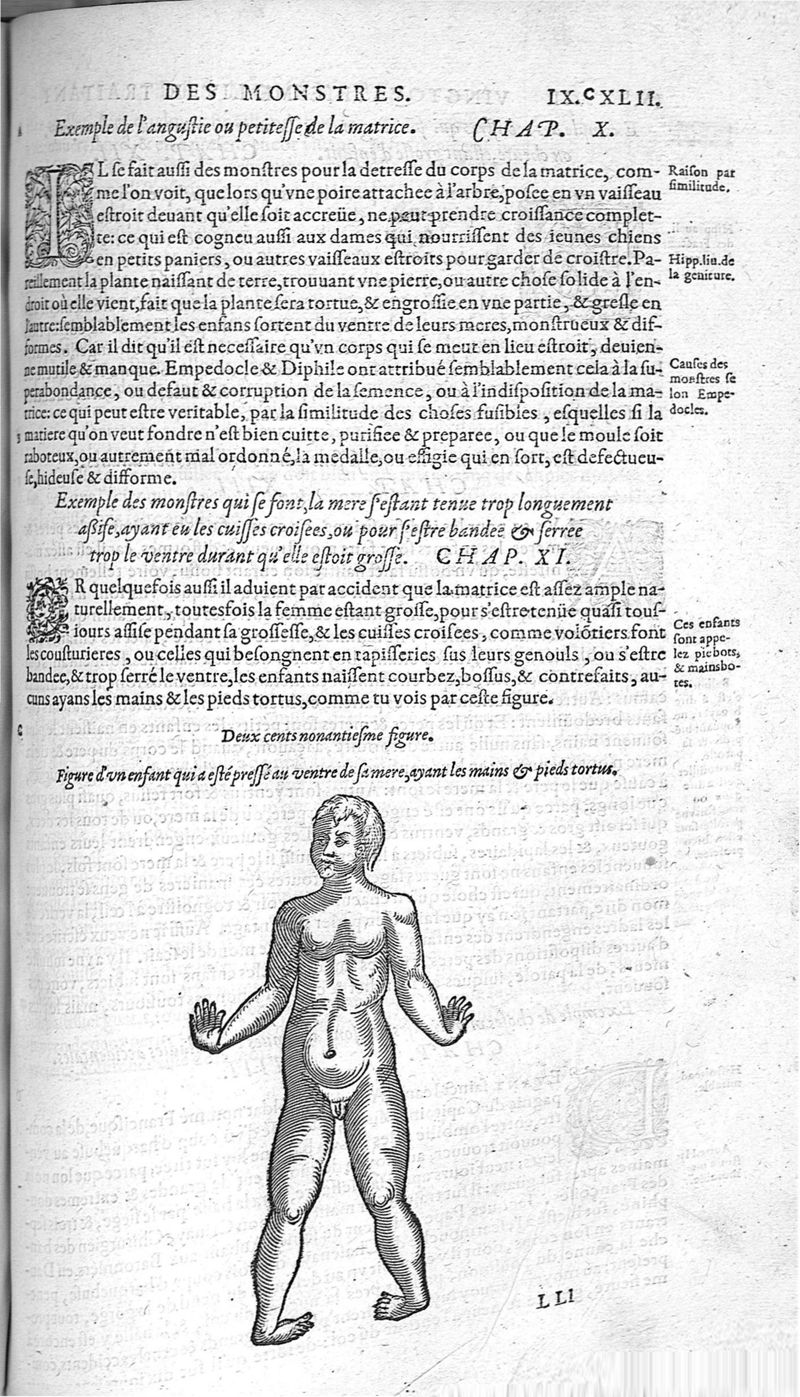 DES MONSTRES. IX.CXLII.
Exemple de l'angustie ou petitesse de la matrice. CHAP. X.
IL se fait aussi des monstres pour la detresse du corps de la matrice, com-
me l'on voit, que lors qu'vne poire attachee à l'arbre, posee en vn vaisseau
estroit deuant qu'elle soit accreüe, ne peut prendre croissance complet-
te: ce qui est cogneu aussi aux dames qui nourrissent des ieunes chiens
en petits paniers, ou autres vaisseaux estroits pour garder de croistre. Pa-
reillement la plante naissant de terre, trouuant vne pierre, ou autre chose solide à l'en-
droit où elle vient, fait que la plante sera tortue, & engrossie en vne partie, & gresle en
l'autre: semblablement les enfans sortent du ventre de leurs meres, monstrueux & dif-
formes. Car il dit qu'il est necessaire qu'vn corps qui se meut en lieu estroit, deuien-
ne mutile & manque. Empedocle & Diphile ont attribué semblablement cela à la su-
perabondance, ou defaut & corruption de la semence, ou à l'indisposition de la ma-
trice: ce qui peut estre veritable, par la similitude des choses fusibles, esquelles si la
matiere qu'on veut fondre n'est bien cuitte, purifiee & preparee, ou que le moule soit
raboteux, ou autrement mal ordonné, la medalle, ou effigie qui en sort, est defectueu-
se, hideuse & difforme.
Raison par
similitude.
Hipp. liu. de
la geniture.
Causes des
monstres se
lon Empe-
docles.
Exemple des monstres qui se font, la mere s'estant tenue trop longuement
assise, ayant eu les cuisses croisees, ou pour s'estre bandee & serree
trop le ventre durant qu'elle estoit grosse. CHAP. XI.
OR quelquefois aussi il aduient par accident que la matrice est assez ample na-
turellement, toutesfois la femme estant grosse, pour s'estre tenüe quasi tous-
iours assise pendant sa grossesse, & les cuisses croisees, comme volōtiers font
les cousturieres, ou celles qui besongnent en tapisseries sus leurs genouls, ou s'estre
bandee, & trop serré le ventre, les enfants naissent courbez, bossus, & contrefaits, au-
cuns ayans les mains & les pieds tortus, comme tu vois par ceste figure.
Ces enfants
sont appe-
lez piebots,
& mainsbo-
tes.
Deux cents nonantiesme figure.
Figure d'vn enfant qui a esté pressé au ventre de sa mere, ayant les mains & pieds tortus.
LLl